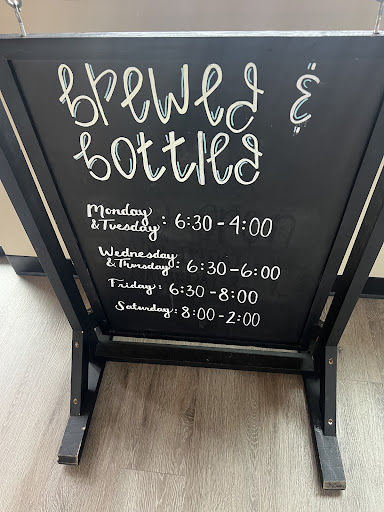 Brewed &
Bottled
Monday
& Tuesday : 6:30 - 4:00
Wednesday
& Thursday : 6:30 - 6:00
Friday : 6:30 - 8:00
Saturday : 8:00 - 2:00